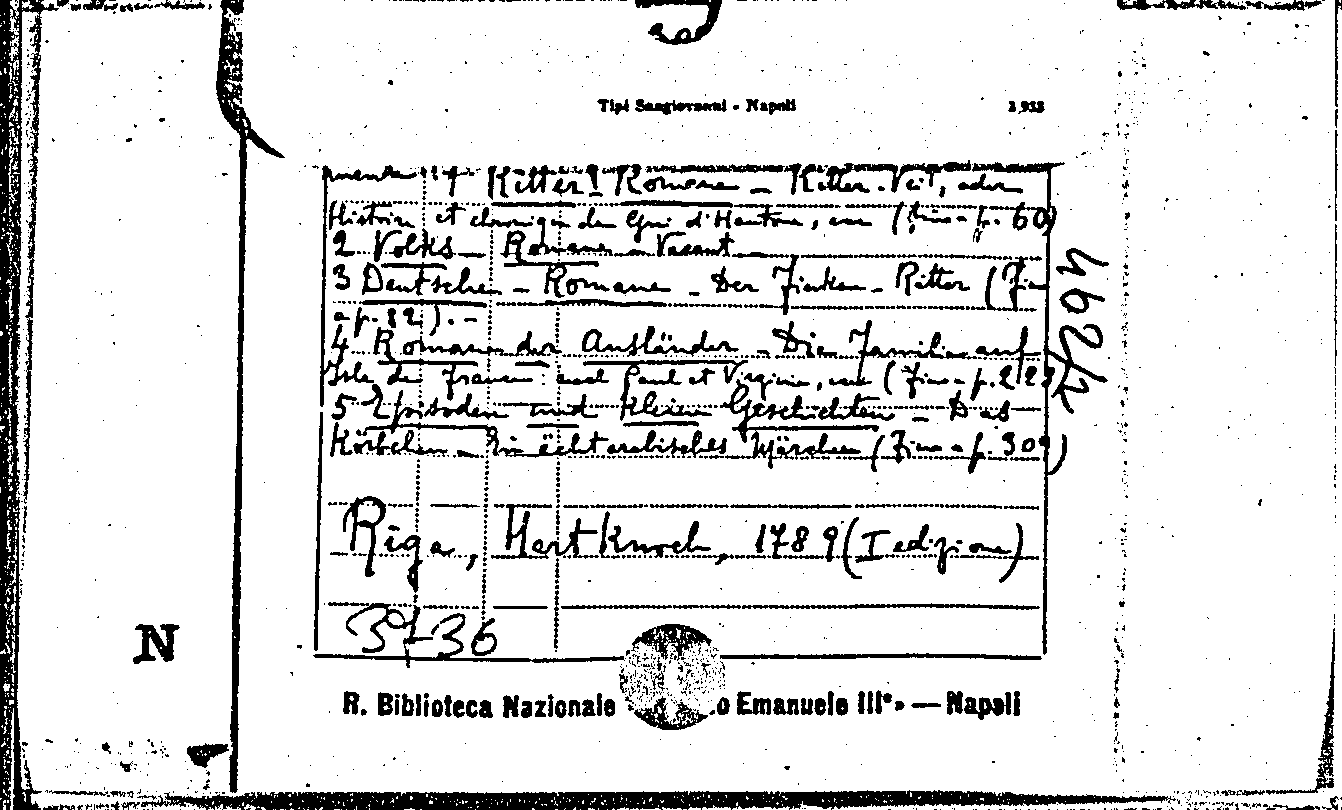 Tipi Sangiovanni - Napoli
Ritter Romane - Ritter Veit, oder
Histoire et du Gui d'Hantone, (fino a p. 60)
2 Volks - Romane - Vacant
3 Deutsche - Romane - Der Finken - Ritter (Fino
a p. 82). -
4 Romane der Ausländer - Die Familie auf
Isle de France: nach Paul et Virginie, (Fino a p.
5 Episoden und kleine Geschichten - Das
Körbchen - Ein ächt arabisches Märchen (Fino a p. 309)
Riga, Hartknoch, 1789 (I edizione)
3736
462/2
N
R. Biblioteca Nazionale o Emanuele III°» — Napoli